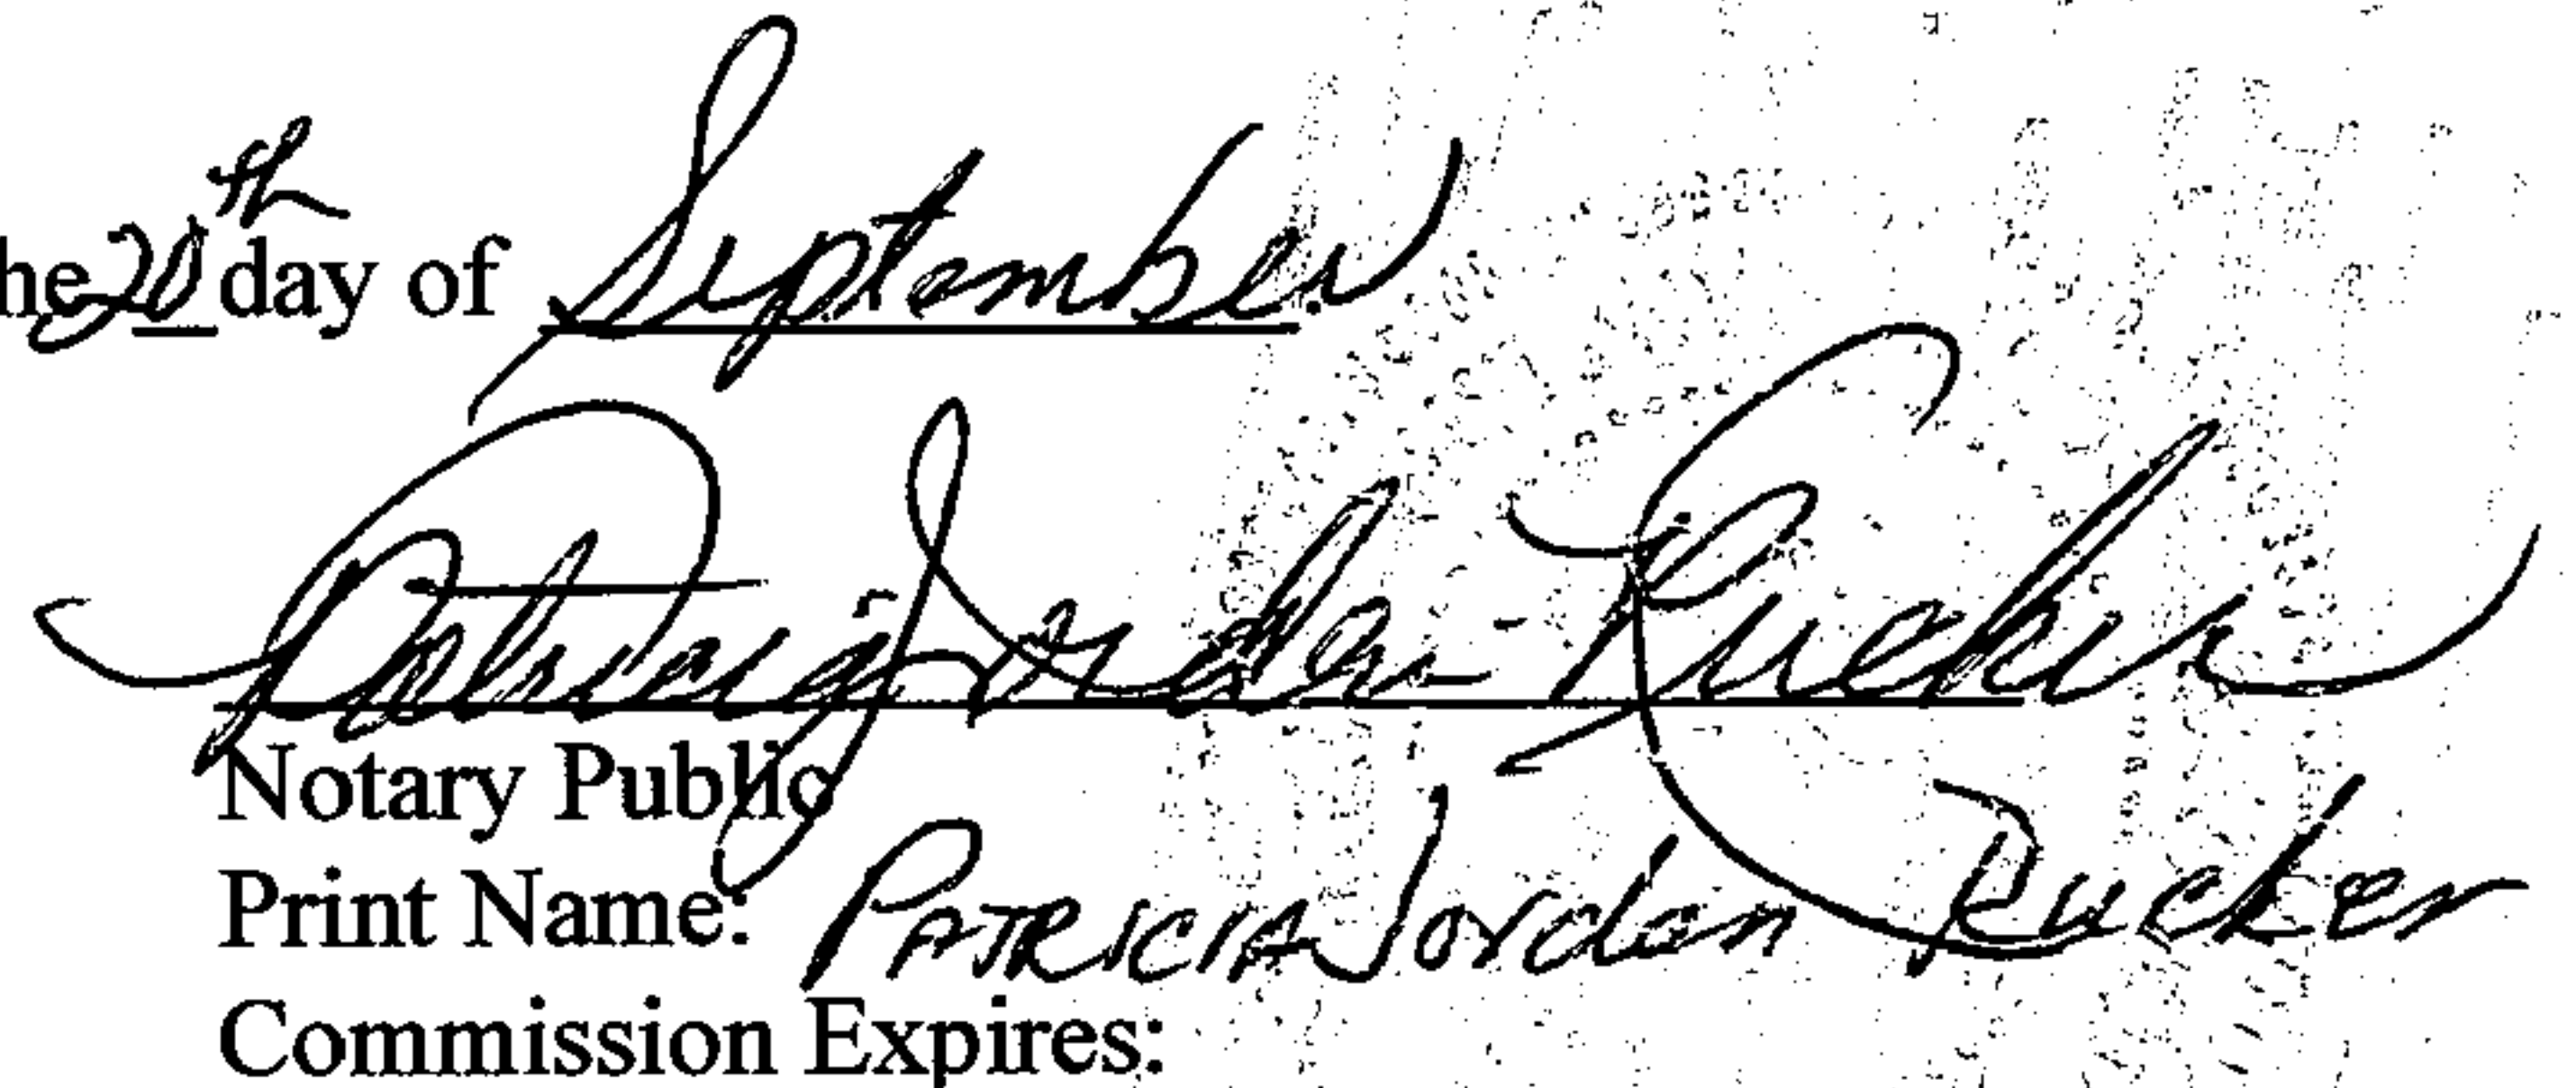 he 20th day of September
Patricia Jordan-Rucker
Notary Public
Print Name: PATRICIA Jordan Rucker
Commission Expires: